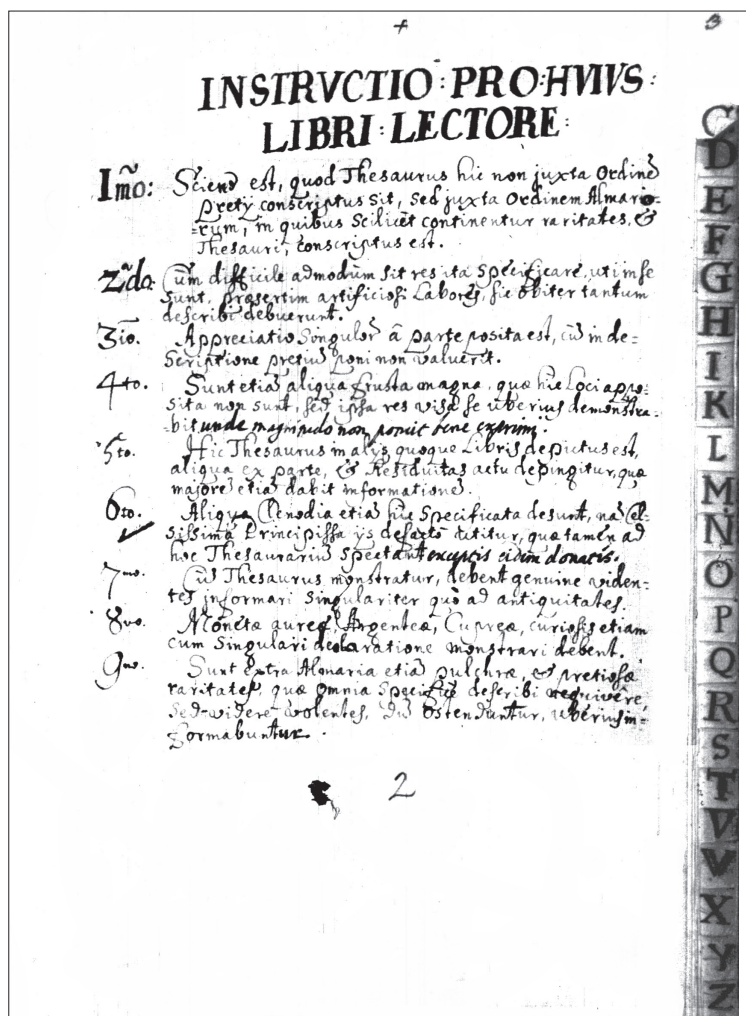 +
3
INSTRVCTIO : PRO : HVIVS :
LIBRI : LECTORE :
Im̃o: Sciend est, quod Thesaurus hic non juxta Ordinẽ
Prety conscriptus sit, sed juxta Ordinem Almario-
-rum, in quibus Scilicet continentur raritates, &
Thesauri, conscriptus est.
2do: Cum difficile admodum sit res ita specificare, uti in se
sunt, præsertim artificiosi Labores, sic obiter tantum
describi debuerunt.
3io. Appreciatio Singulor̃ ã parte posita est, cũ in de=
scriptione pretiũ poni non valuerit.
4to. Sunt etiã aliqua frusta magna, quæ hic Loci appo-
sita non sunt, sed ipsa res visa se uberius demonstra-
bit unde magnitudo non potuit bene exprimi.
5to. Hic Thesaurus in alys quoque Libris depictus est,
aliqua ex parte, & Residuitas actu depingitur, quæ
majorẽ etiã dabit informationẽ.
6to. Aliqua Clenodia etiã hic Specificata desunt, nã Cel-
sissima Principissa ijs de facto utitur, quæ tamen ad
hoc Thesaurariũ Spectant exceptis eidem donatis.
7mo. Cũ Thesaurus monstratur, debent genuine viden-
tes informari singulariter quo ad antiquitates.
8vo. Monetæ aureæ, Argenteæ, Cupreæ, curiosis etiam
cum Singulari declaratione monstrari debent.
9no. Sunt extra Almaria etiã pulchræ, & pretiosæ
raritates, quæ omnia Specificè describi nequivêre,
Sed videre volentes, dũ ostenduntur, uberius in-
formabuntur.
2
C
D
E
F
G
H
I
K
L
M
N
O
P
Q
R
S
T
V
W
X
Y
Z